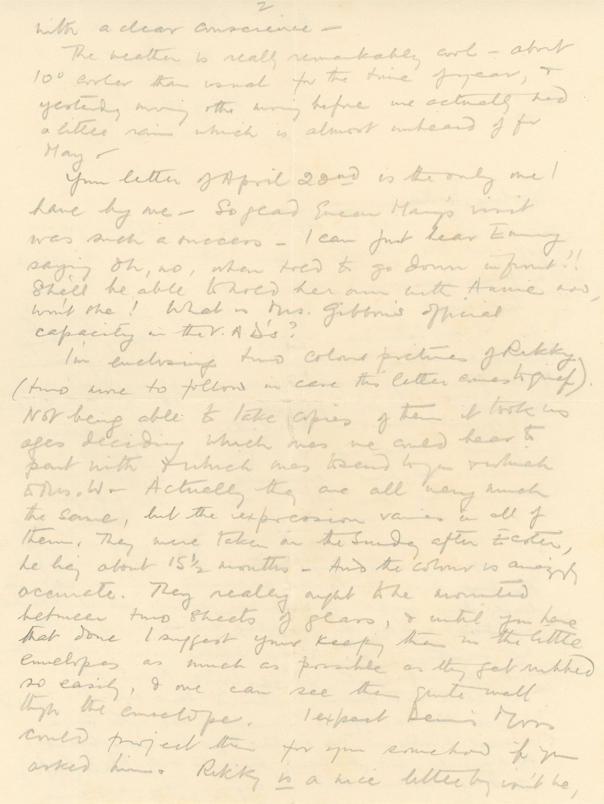 2
with a clear conscience –
The weather is really remarkably cool – about
10° cooler than usual for the time of year, &
yesterday morning & the morning before we actually had
a little rain which is almost unheard of for
May –
Your letter of April 22nd is the only one I
have by me – So glad Mary's visit
was such a success – I can just hear
saying Oh, no, when told to go down in front!!
She'll be able to hold her own with Annie now,
won't she! What is Mrs. Gibbons official
capacity in the V.A.D's?
I'm enclosing two colour pictures of Rikky
(two more to follow in case this letter comes to grief).
Not being able to take copies of them it took us
ages deciding which ones we could bear to
part with & which ones to send to you & which
to Mrs. W – Actually they are all very much
the same, but the expression varies in all of
them. They were taken on the Sunday after Easter,
he being about 15½ months – And the colour is amazingly
accurate. They really ought to be mounted
between two sheets of glass, & until you have
that done I suggest your keeping them in the little
envelopes as much as possible as they get rubbed
so easily, & one can see them quite well
thro the envelope. I expect Denis Moss
could project them for you somehow if you
asked him. Rikky is a nice little boy isn't he,